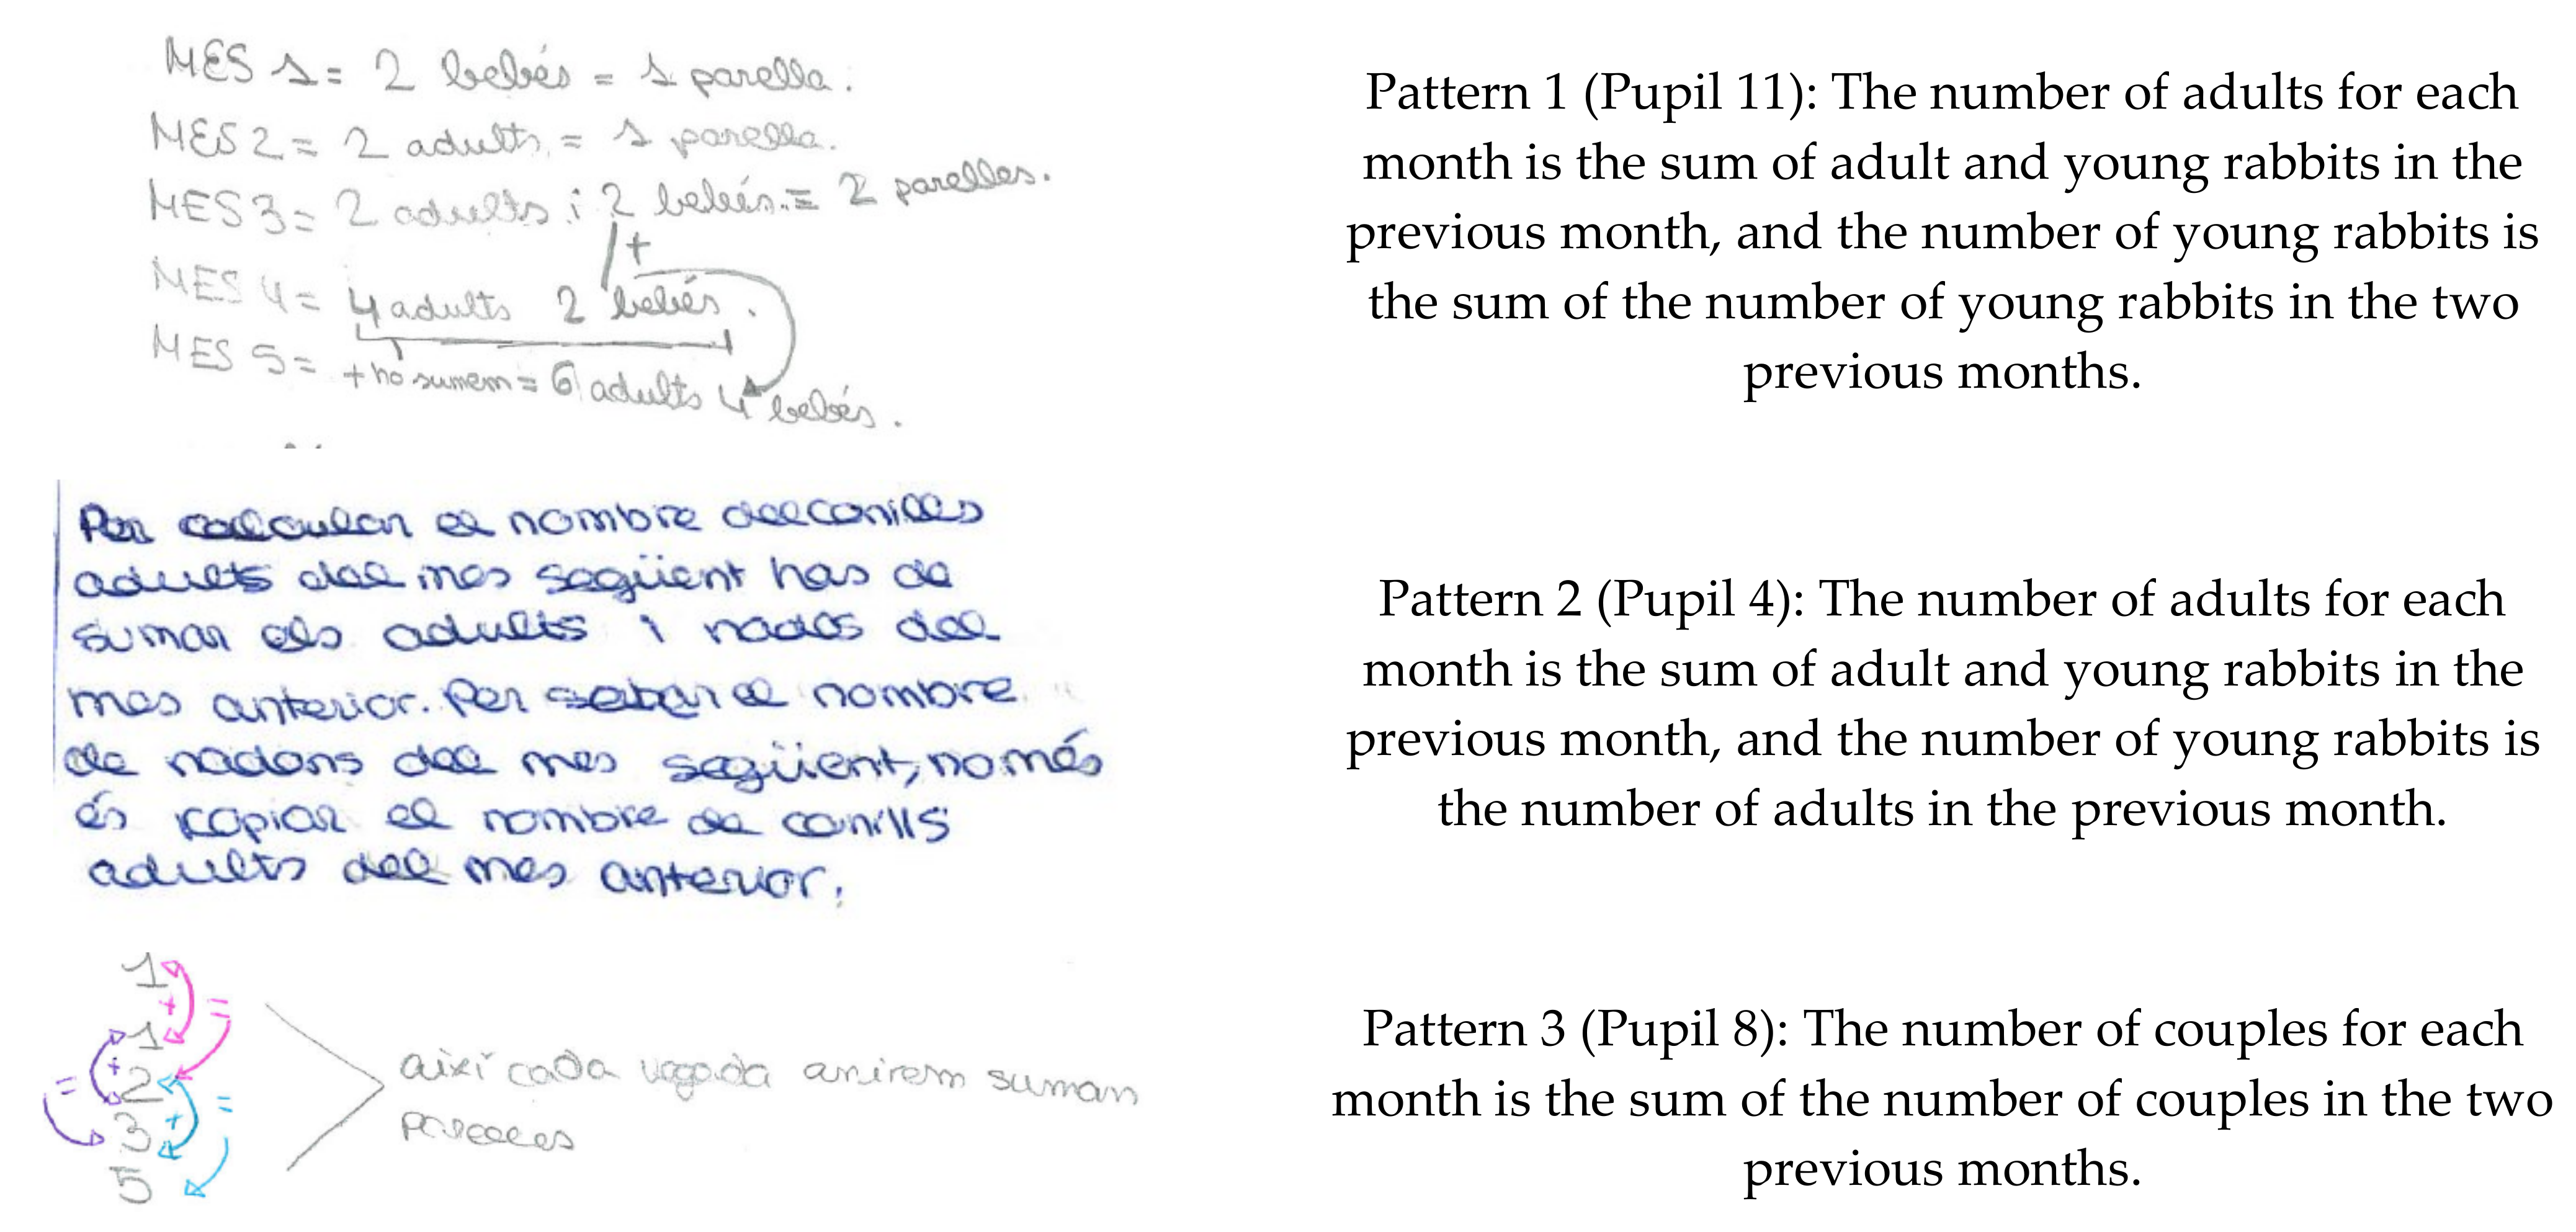 MES 1= 2 bebés = 1 parella.
MES 2= 2 adults, = 1 parella.
MES 3= 2 adults i 2 bebés.= 2 parelles.
+
MES 4= 4 adults 2 bebés.
MES 5= + ho sumem= 6 adults 4 bebés.
Pattern 1 (Pupil 11): The number of adults for each
month is the sum of adult and young rabbits in the
previous month, and the number of young rabbits is
the sum of the number of young rabbits in the two
previous months.
Per calcular el nombre del conills
adults del mes següent has de
sumar els adults i nados del
mes anterior. Per saber el nombre
de nadons del mes següent, només
és copiar el nombre de conills
adults del mes anterior.
Pattern 2 (Pupil 4): The number of adults for each
month is the sum of adult and young rabbits in the
previous month, and the number of young rabbits is
the number of adults in the previous month.
1
+ =
1
+
= 2
+ =
3
5
així cada vegada anirem suman
parelles
Pattern 3 (Pupil 8): The number of couples for each
month is the sum of the number of couples in the two
previous months.